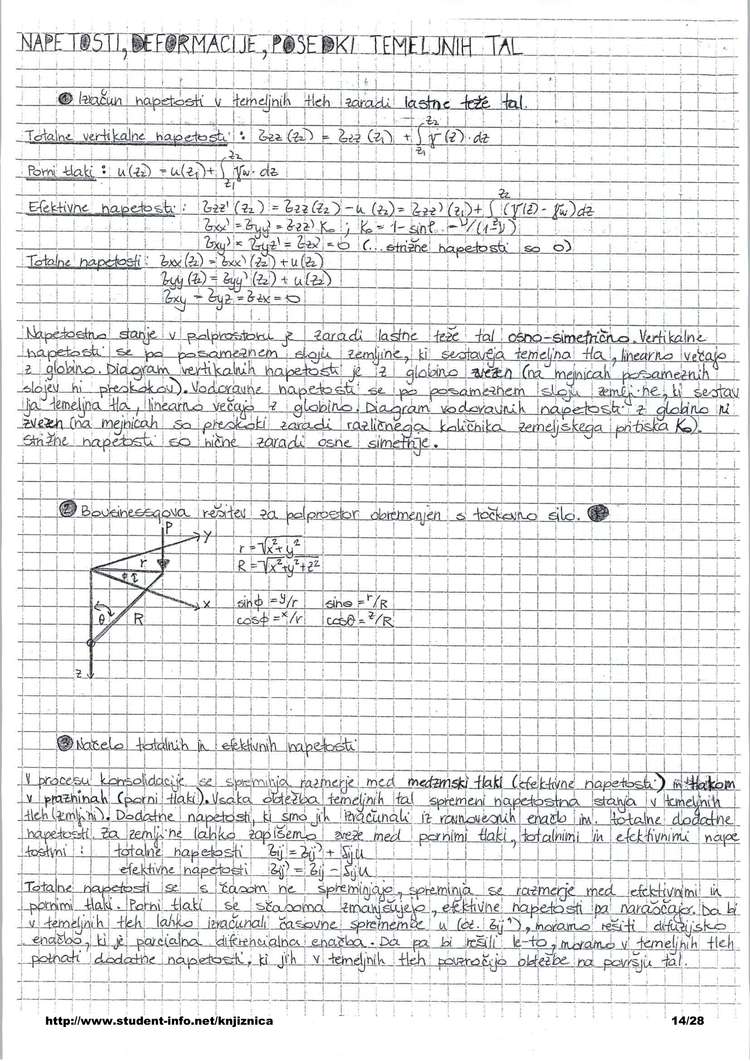 NAPETOSTI, DEFORMACIJE, POSEDKI TEMELJNIH TAL
① Izračun napetosti v temeljnih tleh zaradi lastne teže tal.
Totalne vertikalne napetosti : σzz (z₂) = σzz (z₁) + ∫_{z₁}^{z₂} γ(z)·dz
Porni tlaki : u(z₂) = u(z₁) + ∫_{z₁}^{z₂} γw·dz
Efektivne napetosti : σzz' (z₂) = σzz (z₂) - u (z₂) = σzz' (z₁) + ∫_{z₁}^{z₂} (γ(z) - γw) dz
σxx' = σyy' = σzz' K₀ ; K₀ = 1 - sinφ
σxy' = σyz' = σzx' = 0 (...strižne napetosti so 0)
Totalne napetosti : σxx (z₂) = σxx' (z₂) + u(z₂)
σyy (z₂) = σyy' (z₂) + u(z₂)
σxy = σyz = σzx = 0
Napetostno stanje v polprostoru je zaradi lastne teže tal osno-simetrično. Vertikalne
napetosti se po posameznem sloju zemljine, ki sestavlja temeljna tla, linearno večajo
z globino. Diagram vertikalnih napetosti je z globino zvezen (na mejnicah posameznih
slojev ni preskokov). Vodoravne napetosti se po posameznem sloju zemljine, ki sestav
lja temeljna tla, linearno večajo z globino. Diagram vodoravnih napetosti z globino ni
zvezen (na mejnicah so preskoki zaradi različnega količnika zemeljskega pritiska K₀).
Strižne napetosti so nične zaradi osne simetrije.
② Bousinessqova rešitev za polprostor obremenjen s točkovno silo.
P
y
r = √x²+y²
R = √x²+y²+z²
r
x
sinφ = y/r sinθ = r/R
cosφ = x/r cosθ = z/R
θ R
z
③ Načelo totalnih in efektivnih napetosti
V procesu konsolidacije se spreminja razmerje med medzrnski tlaki (efektivne napetosti) in tlakom
v prazninah (porni tlaki). Vsaka obtežba temeljnih tal spremeni napetostna stanja v temeljnih
tleh (zemljini). Dodatne napetosti, ki smo jih izračunali iz ravnovesnih enačb im. totalne dodatne
napetosti. Za zemljine lahko zapišemo zveze med pornimi tlaki, totalnimi in efektivnimi nape
tostmi : totalne napetosti σij = σij' + δiju
efektivne napetosti σij' = σij - δiju
Totalne napetosti se s časom ne spreminjajo, spreminja se razmerje med efektivnimi in
pornimi tlaki. Porni tlaki se sčasoma zmanjšujejo, efektivne napetosti pa naraščajo. Da bi
v temeljnih tleh lahko izračunali časovne spremembe u (oz. σij'), moramo rešiti difuzijsko
enačbo, ki je parcialna diferencialna enačba. Da pa bi rešili le-to, moramo v temeljnih tleh
poznati dodatne napetosti, ki jih v temeljnih tleh povzročijo obtežbe na površju tal.
http://www.student-info.net/knjiznica 14/28